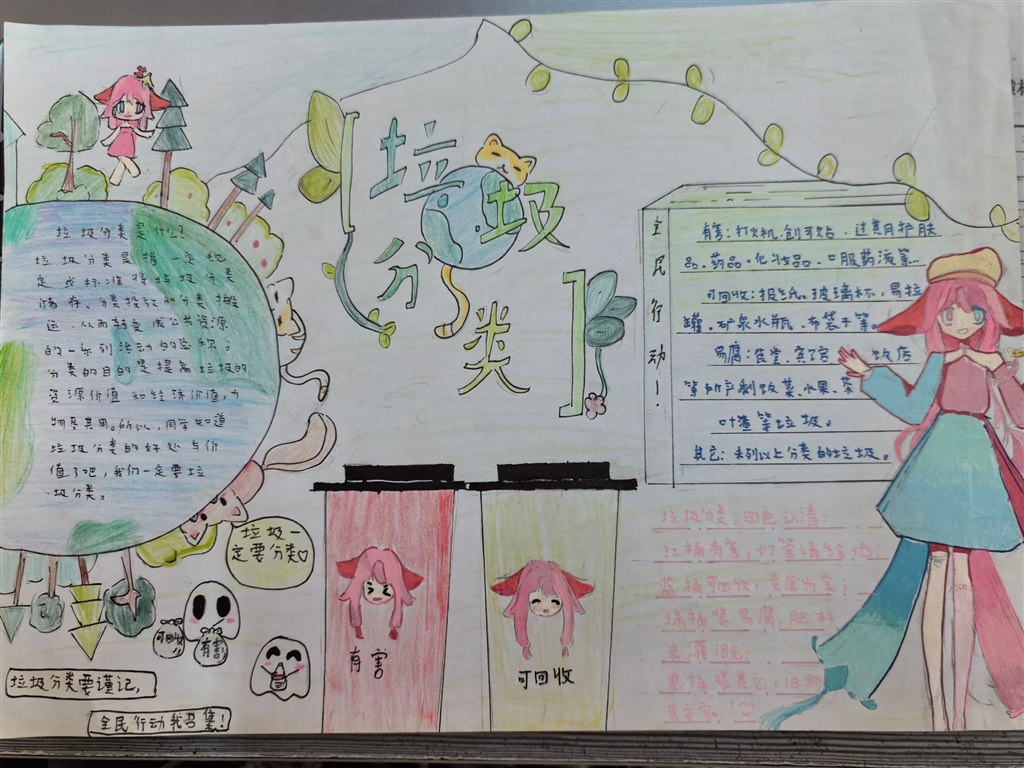 垃圾分类
垃圾分类是什么?
垃圾分类是指一定规
定或标准将垃圾分类
储存、分类投放和分类搬
运,从而转变成公共资源
的一系列活动的总称。
分类的目的是提高垃圾的
资源价值和经济价值,力
物尽其用。所以,同学知道
垃圾分类的好处与价
值了吧,我们一定要垃
圾分类。
垃圾一
定要分类
可回收
有害
垃圾分类要谨记,
全民行动我召集!
有害
可回收
全民行动!
有害:打火机、创可贴、过期护肤
品、药品、化妆品、口服药液等...
可回收:报纸、玻璃杯、易拉
罐、矿泉水瓶、布袋子等。
易腐:食堂、宾馆、饭店
等所产剩饭菜、水果、茶
叶渣等垃圾。
其它:未列以上分类的垃圾。
垃圾分类,四色认清:
红桶有害,灯管请给地;
蓝桶可回收,
绿桶装易腐,肥料
来灌溉;
黑桶 其它,旧物